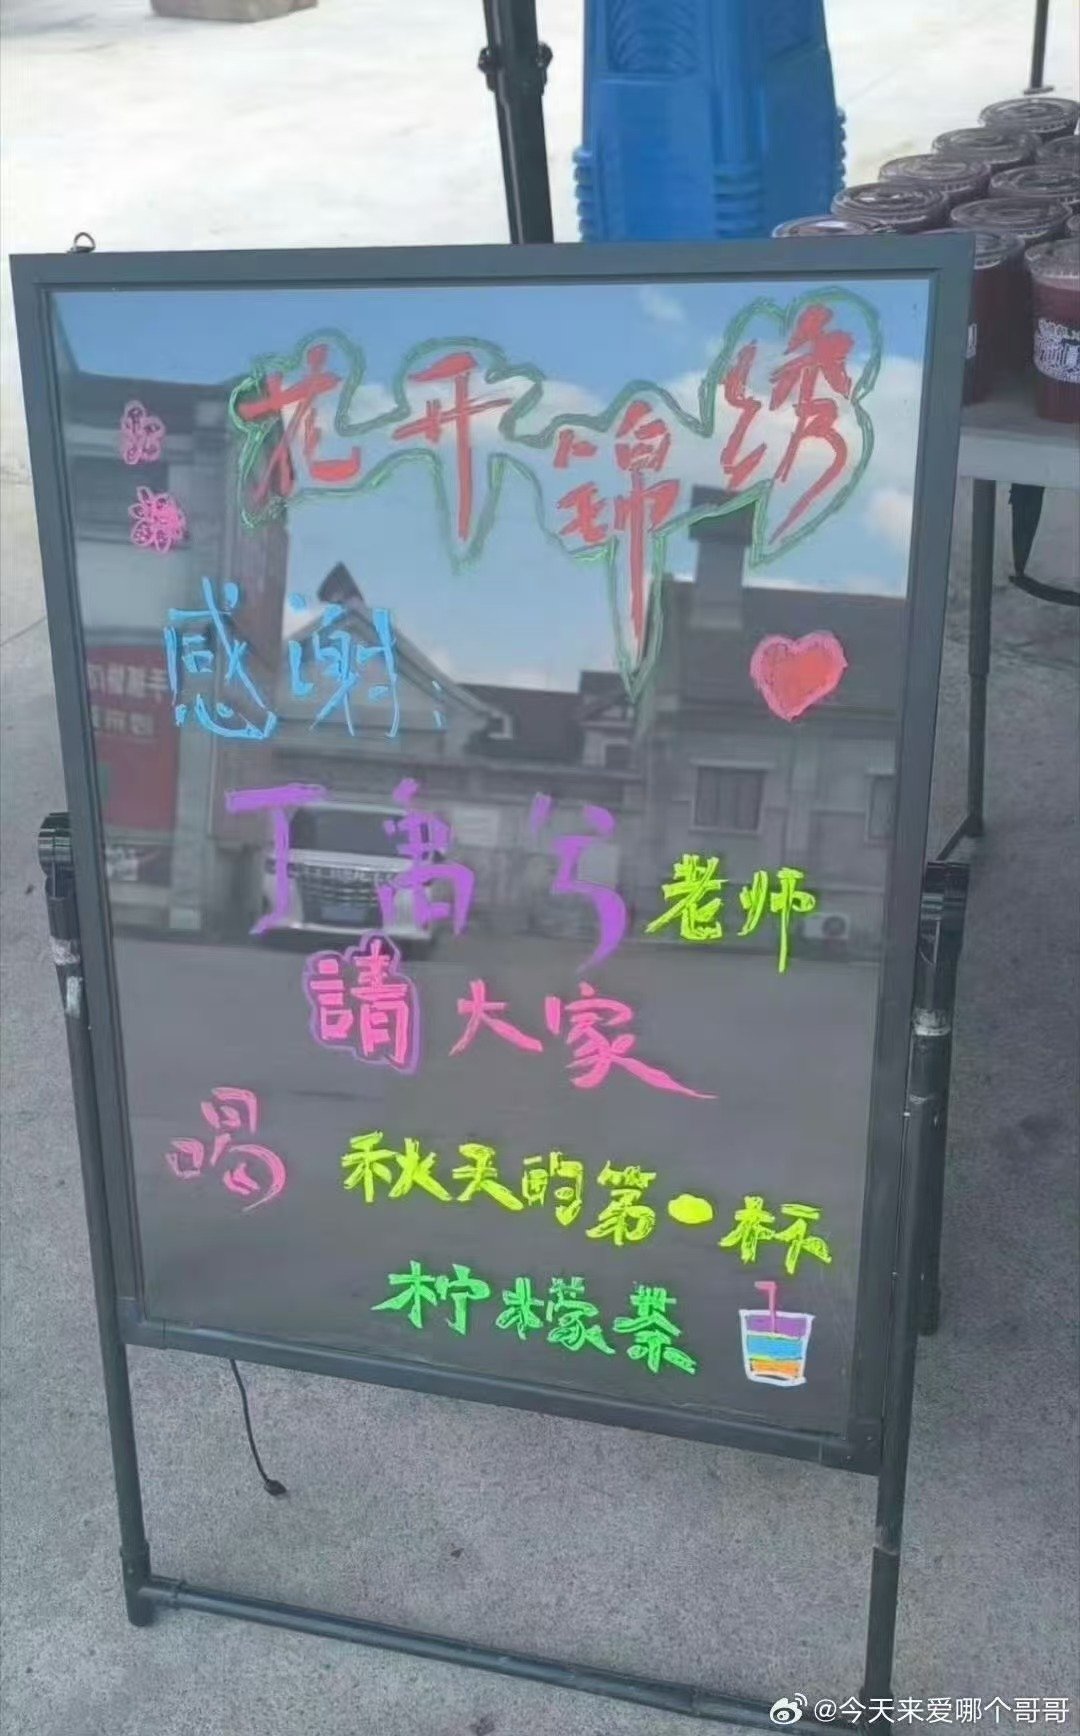 花开锦绣
感谢：
丁禹兮老师
請大家
喝 秋天的第一杯
柠檬茶
@今天来爱哪个哥哥